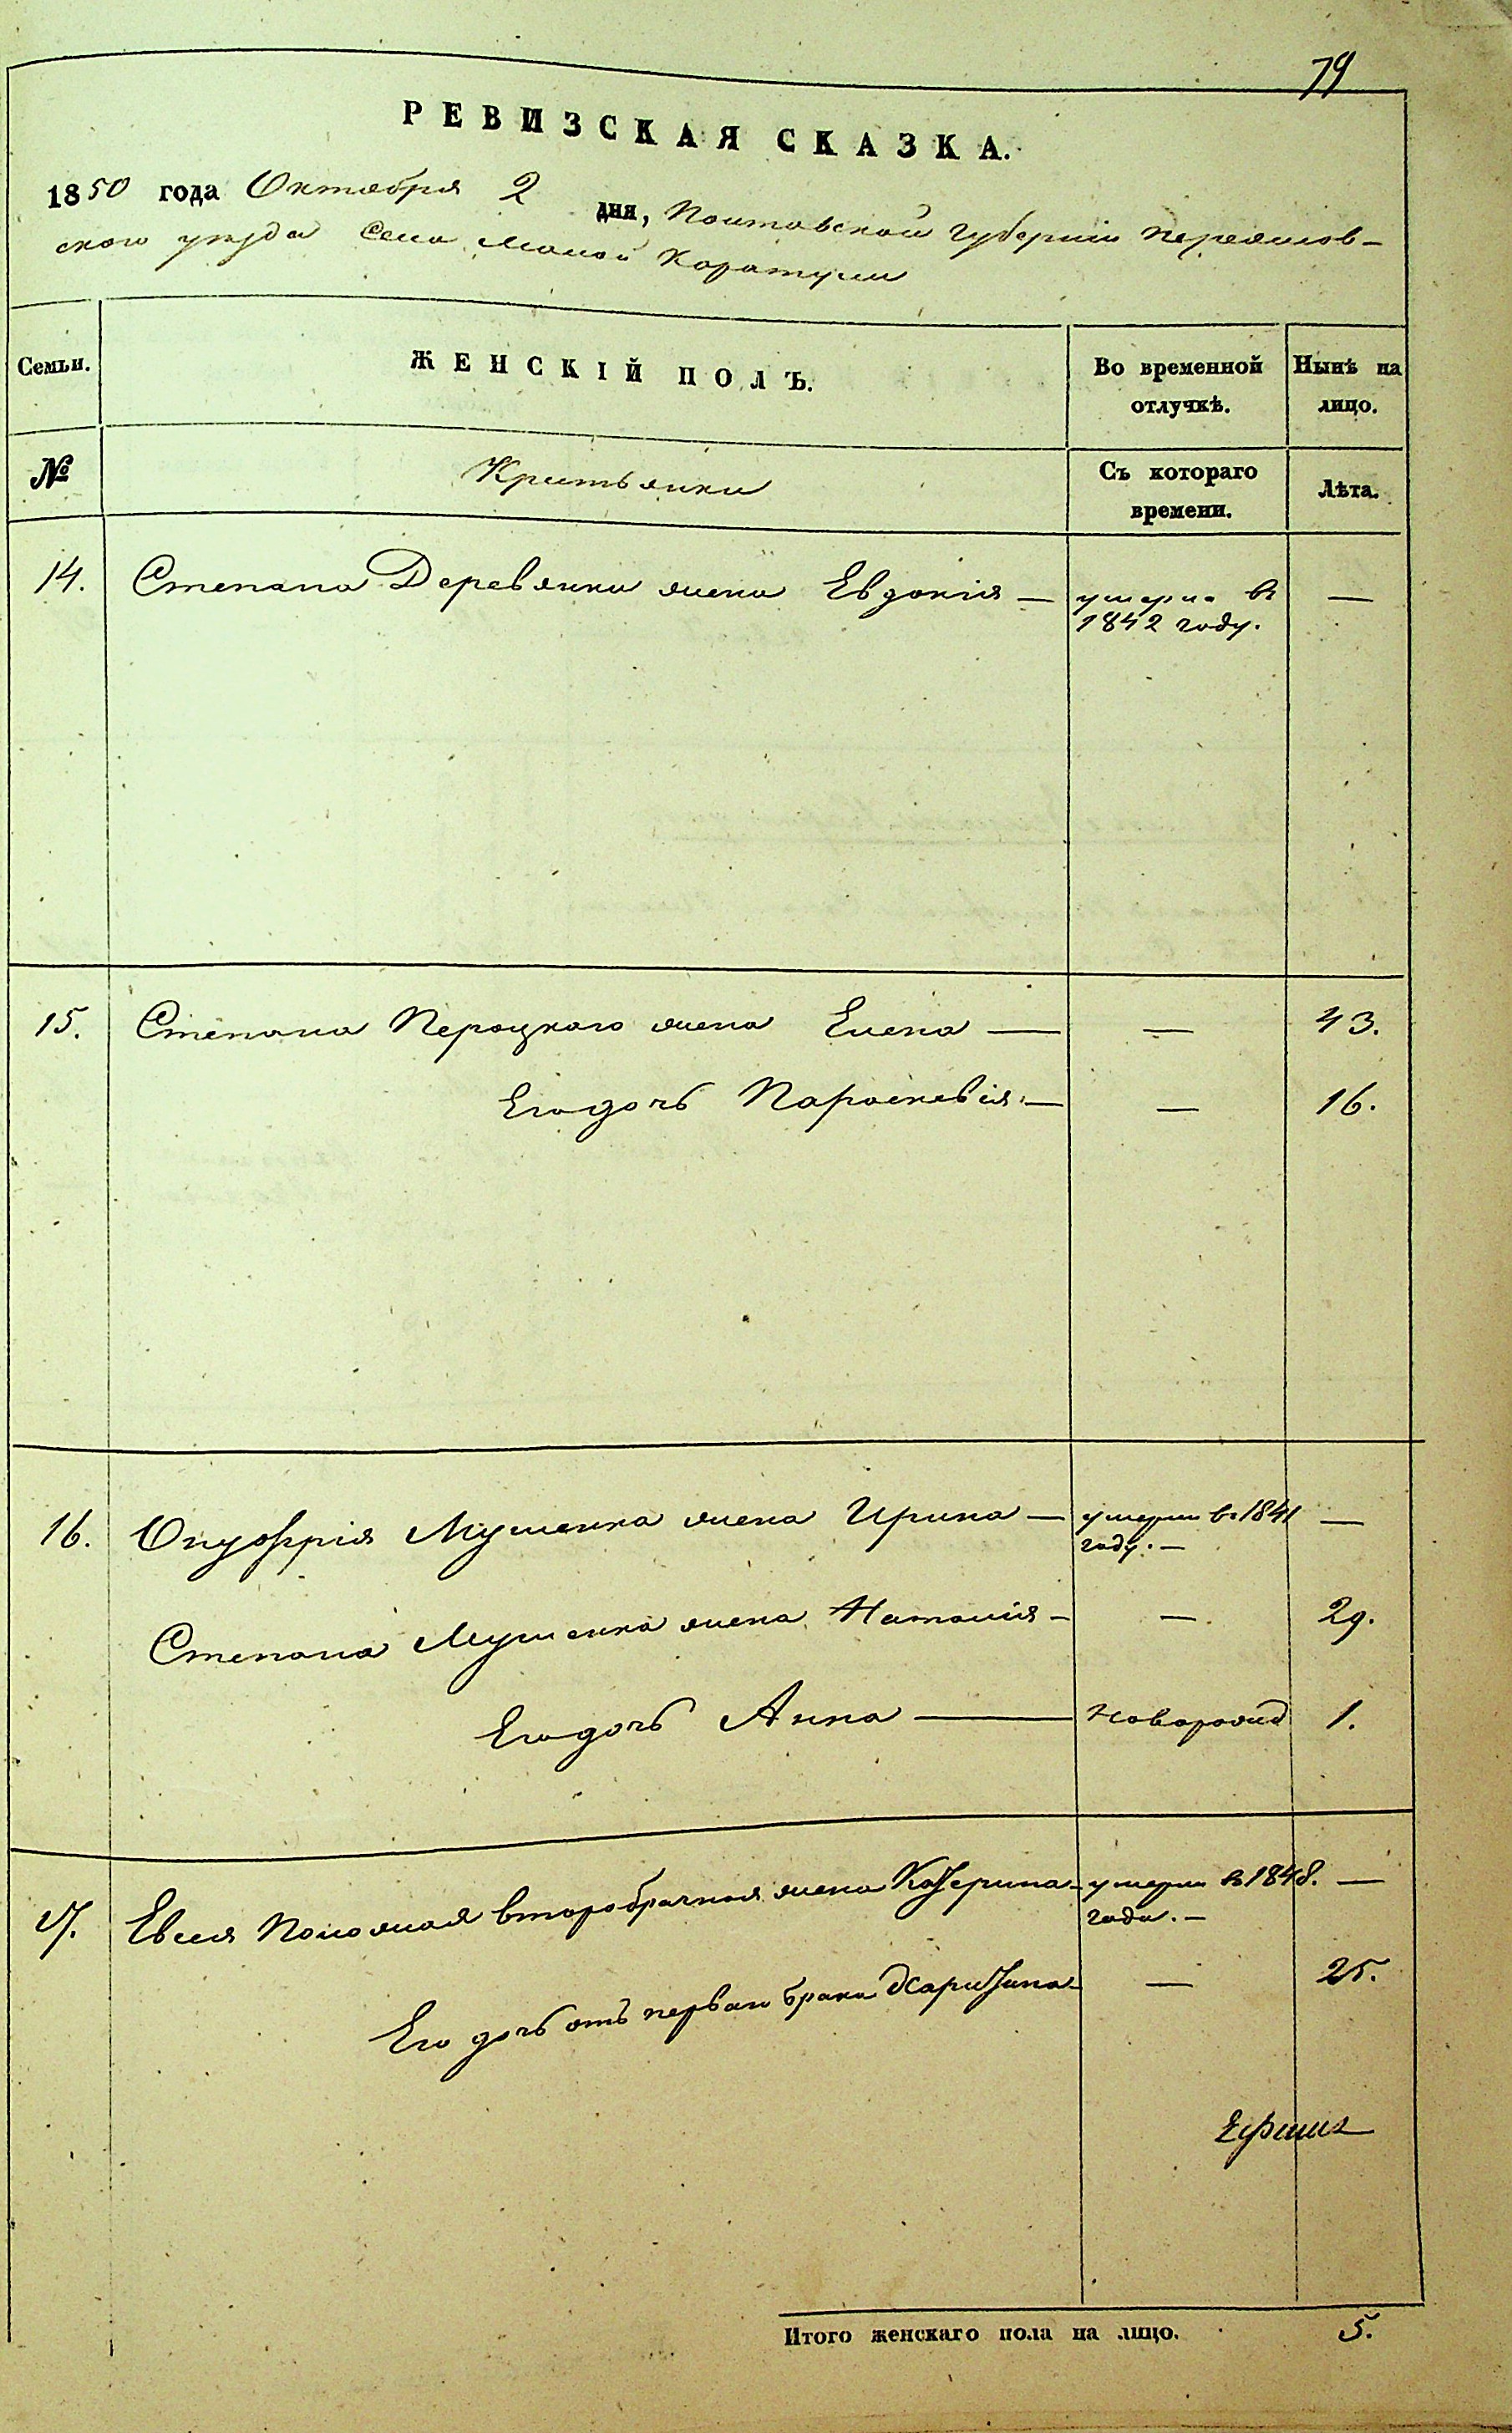 79
РЕВИЗСКАЯ СКАЗКА.
1850 года Октября 2 дня, Полтавской губерніи Переяслов-
ского уезда Села Малой Каратули
Семьи. ЖЕНСКІЙ ПОЛЪ. Во временной отлучкѣ. Нынѣ на лицо.
№ Съ котораго времени. Лѣта.
14. Степана Деревянки жена Евдокія — умерла въ —
1842 году.
15. Степана жена Елена — — 43.
Его дочь Параскевія — — 16.
16. Онуфрія Мушенка жена Ирина — умерла въ 1841 —
году. —
Степана Мушенка жена Наталія — — 29.
Его дочь Анна — Новорожд 1.
17. Евсея второбрачная жена Катерина — умерла въ 1848. —
года. —
Его дочь отъ перваго брака Харитина — — 25.
Итого женскаго пола на лицо. 5.